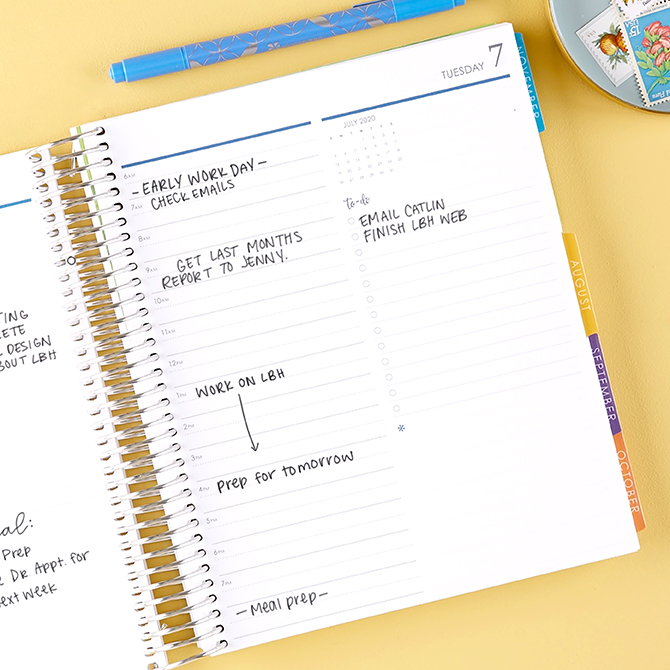 TING
LETE
DESIGN
BOUT LBH
al:
Prep
Dr Appt. for
next week
TUESDAY 7
6AM
- EARLY WORK DAY -
7AM
CHECK EMAILS
8AM
9AM
GET LAST MONTHS
REPORT TO JENNY.
10AM
11AM
12PM
1PM
WORK ON LBH
2PM
3PM
4PM
Prep for tomorrow
5PM
6PM
7PM
- Meal prep -
JULY 2020
to-do
EMAIL CATLIN
FINISH LBH WEB
NOVEMBER
AUGUST
SEPTEMBER
OCTOBER
15c